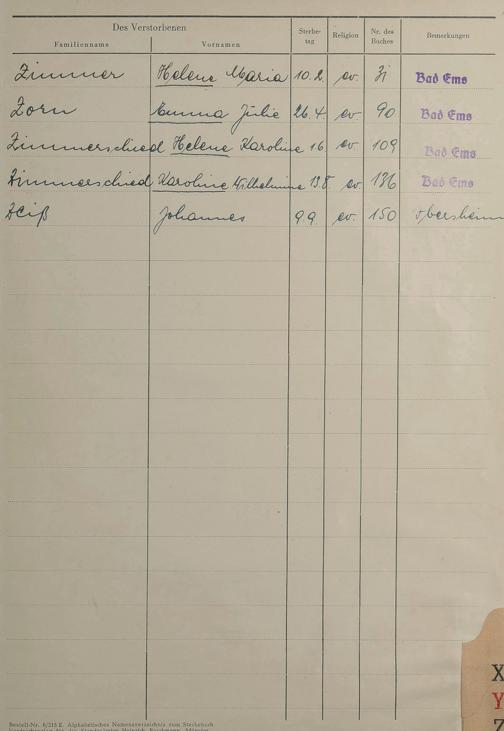 Des Verstorbenen
Familienname Vornamen Sterbe-tag Religion Nr. des Buches Bemerkungen
Zimmer Helene Maria 10.2. ev. 31 Bad Ems
Zorn Emma Julie 26.4. ev. 90 Bad Ems
Zimmerschied Helene Karoline 16 ev. 109 Bad Ems
Zimmerschied Karoline Wilhelmine 13.8 ev. 136 Bad Ems
Zeiß Johannes 9.9. ev. 150
X
Y
Z
Bestell-Nr. 8/215 E. Alphabetisches Namensverzeichnis zum Sterbebuch